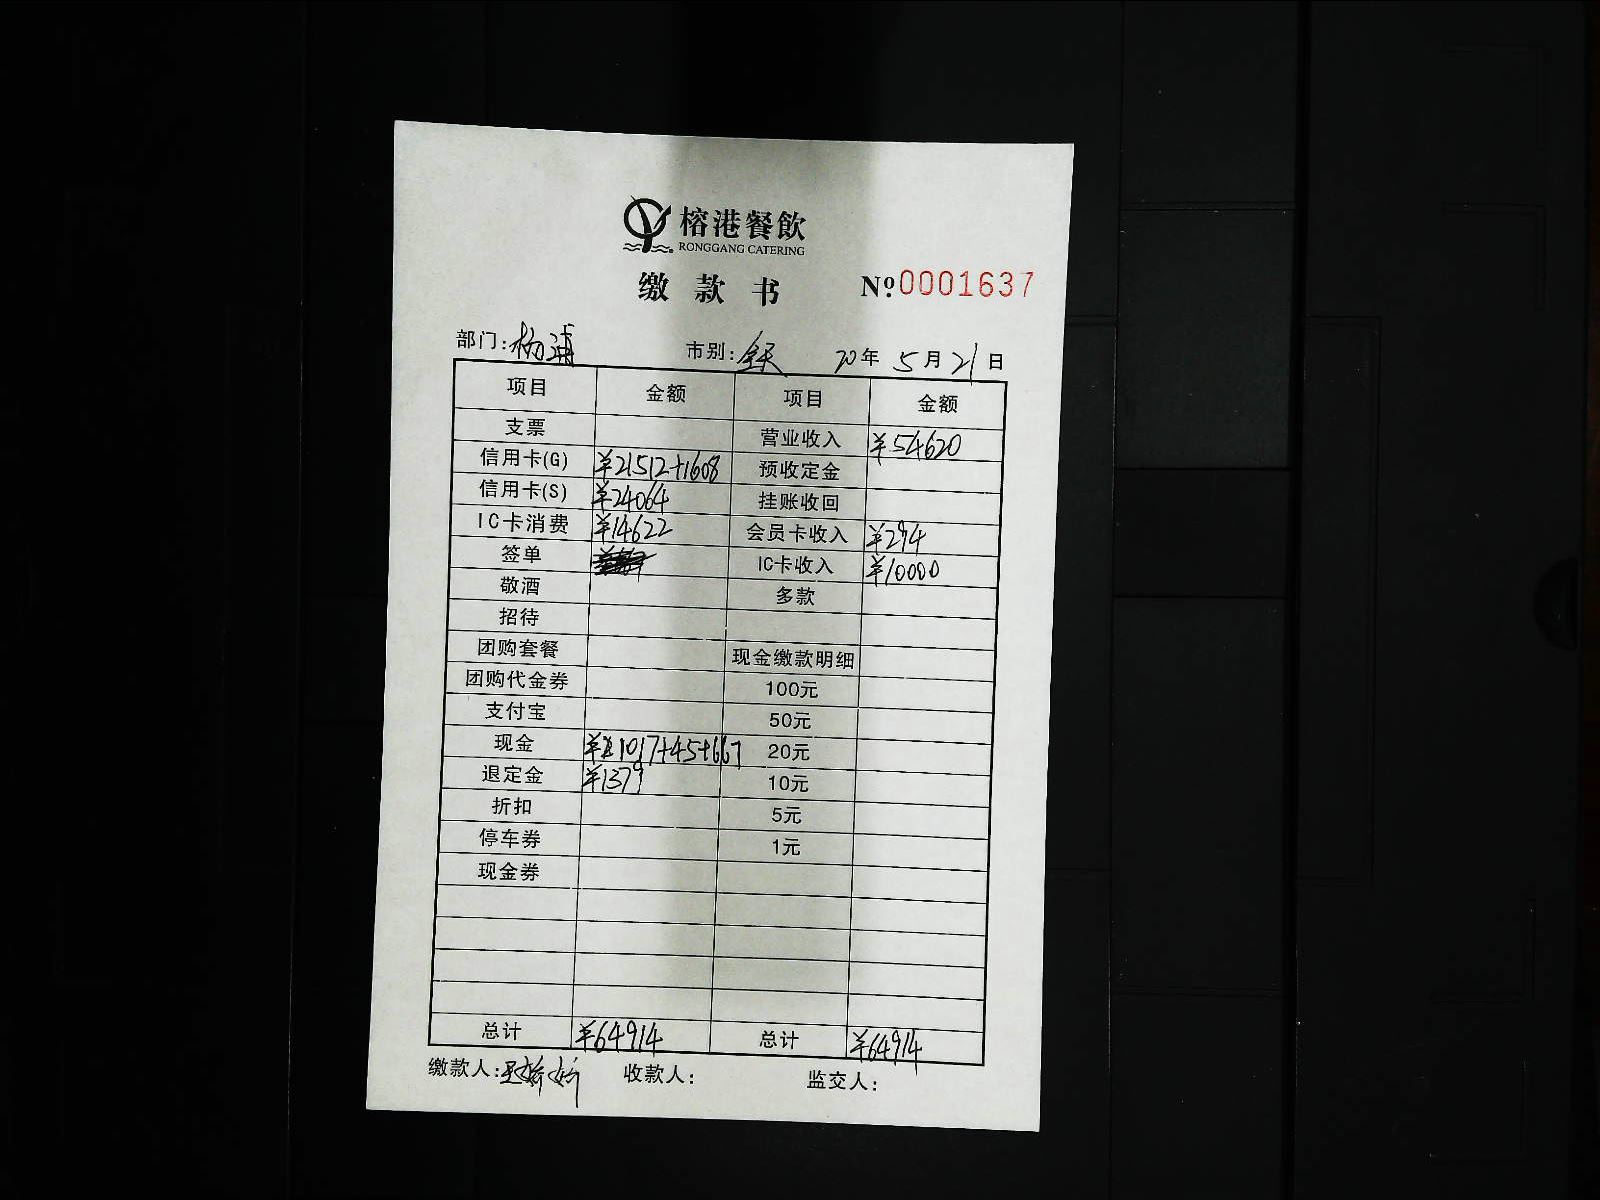 榕港餐飲
RONGGANG CATERING
缴款书 №0001637
部门:杨浦 市别:全天 20年5月21日
项目 金额 项目 金额
支票 营业收入 ¥54620
信用卡(G) ¥21512+1608 预收定金
信用卡(S) ¥24064 挂账收回
IC卡消费 ¥14622 会员卡收入 ¥294
签单 IC卡收入 ¥10000
敬酒 多款
招待
团购套餐 现金缴款明细
团购代金券 100元
支付宝 50元
现金 ¥1017+45+667 20元
退定金 ¥1379 10元
折扣 5元
停车券 1元
现金券
总计 ¥64914 总计 ¥64914
缴款人: 收款人: 监交人: